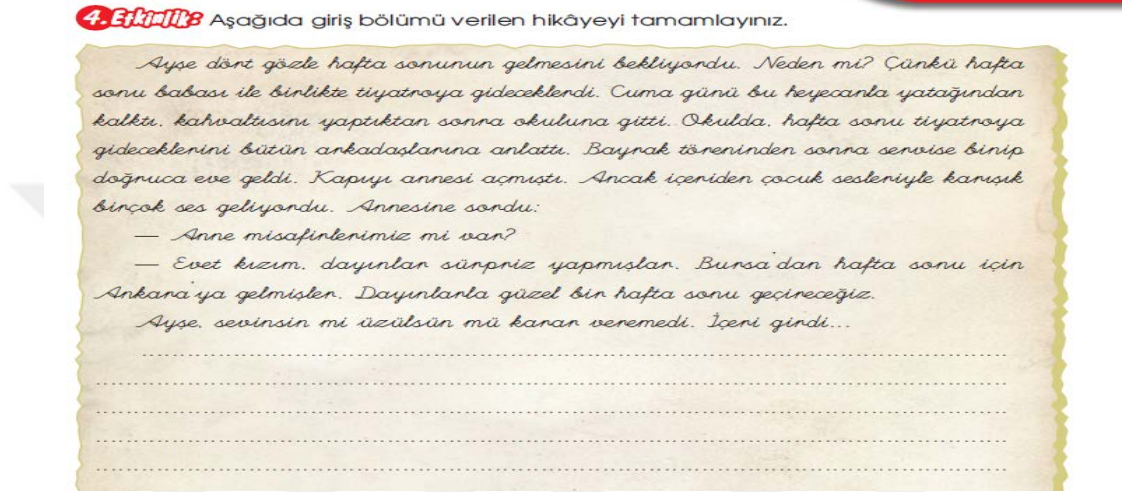 4. Etkinlik: Aşağıda giriş bölümü verilen hikâyeyi tamamlayınız.
Ayşe dört gözle hafta sonunun gelmesini bekliyordu. Neden mi? Çünkü hafta
sonu babası ile birlikte tiyatroya gideceklerdi. Cuma günü bu heyecanla yatağından
kalktı, kahvaltısını yaptıktan sonra okuluna gitti. Okulda, hafta sonu tiyatroya
gideceklerini bütün arkadaşlarına anlattı. Bayrak töreninden sonra servise binip
doğruca eve geldi. Kapıyı annesi açmıştı. Ancak içeriden çocuk sesleriyle karışık
birçok ses geliyordu. Annesine sordu:
— Anne misafirlerimiz mi var?
— Evet kızım, dayınlar sürpriz yapmışlar. Bursa'dan hafta sonu için
Ankara'ya gelmişler. Dayınlarla güzel bir hafta sonu geçireceğiz.
Ayşe, sevinsin mi üzülsün mü karar veremedi. İçeri girdi...